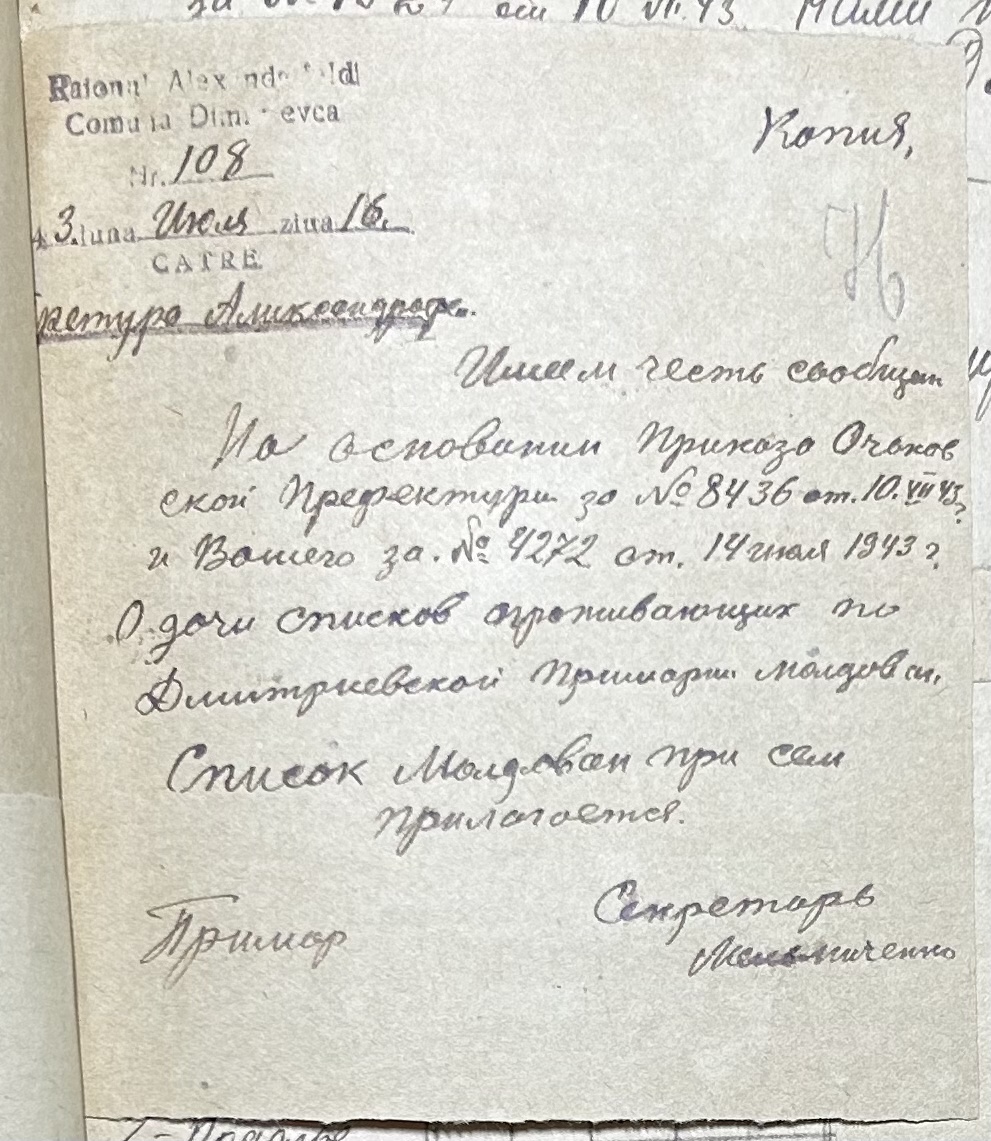 за от 10 VII.43
Raionul Alexandefeldl
Копия,
Comuna Dim evca
Nr. 108
43. luna Июля ziua 16.
CATRE
ретура Аликсандрофе.
Имеем честь сообщит
На основании Приказа Очаков
ской Префектури за № 8436 от. 10. VII 43 г
и Вашего за. № 4272 от. 14 июля 1943 г.
О дачи списков проживающих по
Дмитриевской Примарии молдован.
Список Молдован при сем
прилагается.
Примар
Секретарь